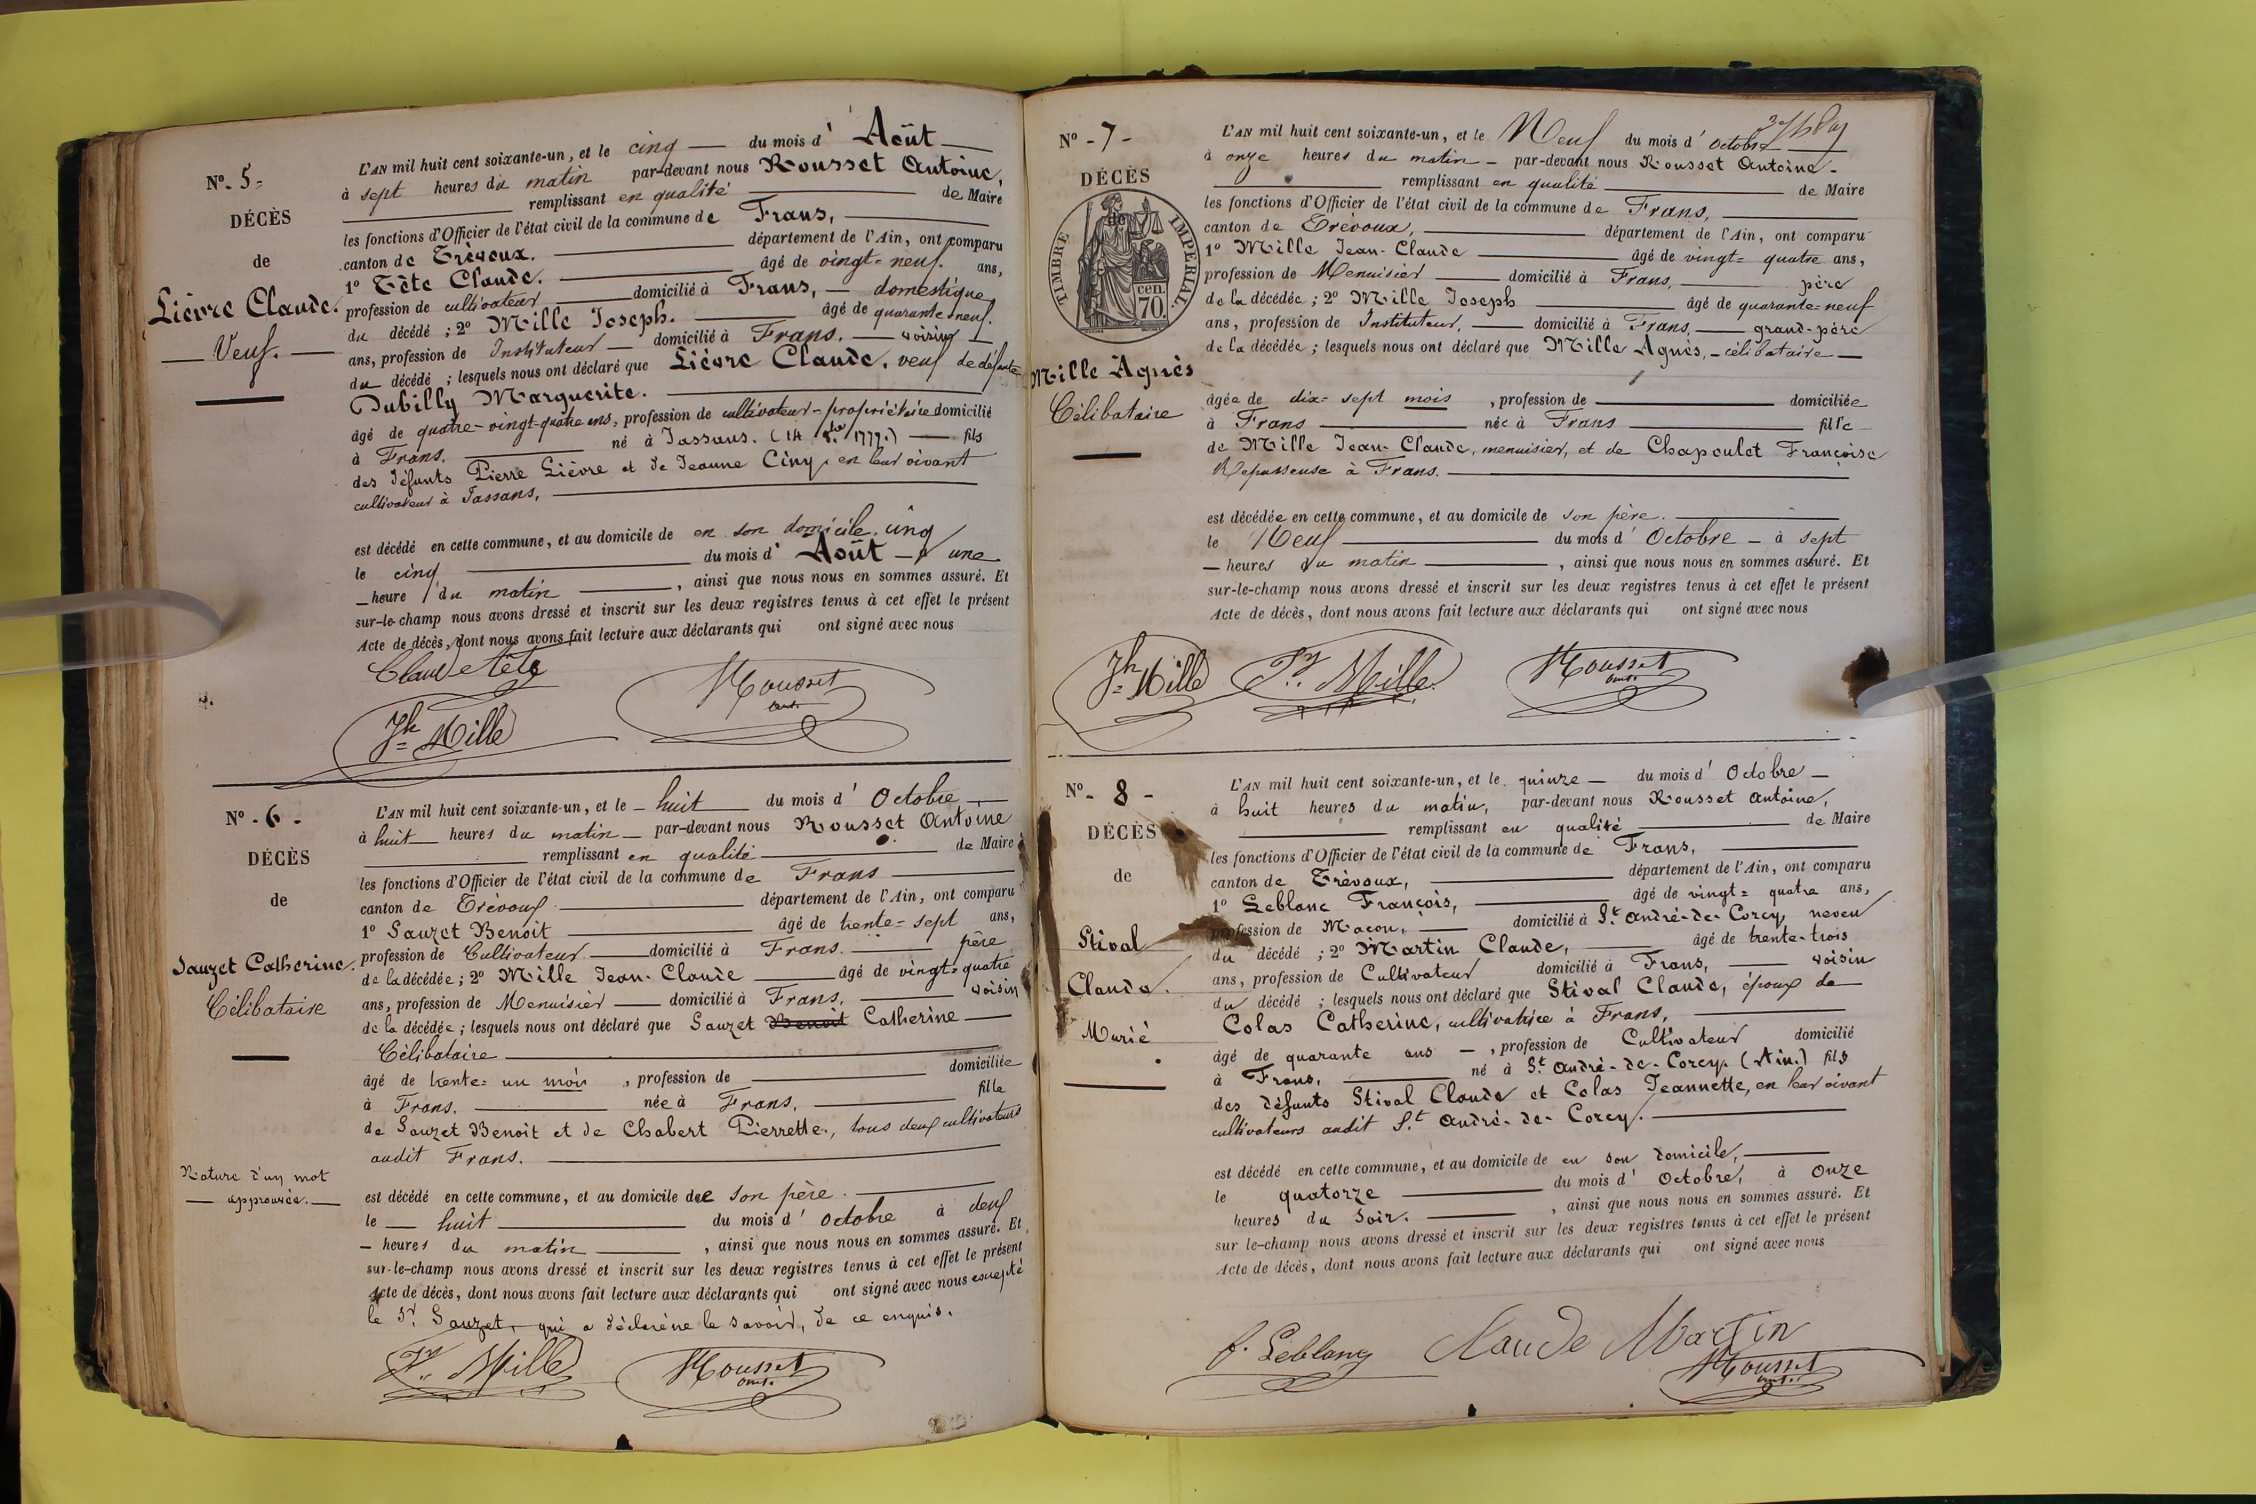 N.º 5.
DÉCÈS
de
Lièvre Claude.
Veuf.
L'AN mil huit cent soixante-un, et le cinq du mois d' Août
à sept heures du matin par-devant nous Rousset Antoine,
remplissant en qualité de Maire
les fonctions d'Officier de l'état civil de la commune de Frans,
canton de Trévoux. département de l'Ain, ont comparu
1º Tête Claude. âgé de vingt-neuf ans,
profession de cultivateur domicilié à Frans, domestique
du décédé ; 2º Mille Joseph. âgé de quarante-neuf
ans, profession de Instituteur domicilié à Frans. voisin
du décédé ; lesquels nous ont déclaré que Lièvre Claude, veuf de défunte
Dubilly Marguerite.
âgé de quatre-vingt-quatre ans, profession de cultivateur-propriétaire domicilié
à Frans. né à Jassans. (14 1777.) fils
des défunts Pierre Lièvre et de Jeanne Ciny, en leur vivant
cultivateur à Jassans,
est décédé en cette commune, et au domicile de en son domicile, cinq
le cinq du mois d' Août à une
heure du matin , ainsi que nous nous en sommes assuré. Et
sur-le-champ nous avons dressé et inscrit sur les deux registres tenus à cet effet le présent
Acte de décès, dont nous avons fait lecture aux déclarants qui ont signé avec nous
Claude tête
Rousset
ant.
Jh Mille
Nº - 6 -
DÉCÈS
de
Sauzet Catherine.
Célibataire
Rature d'un mot
approuvée.
L'AN mil huit cent soixante-un, et le huit du mois d' Octobre
à huit heures du matin par-devant nous Rousset Antoine
remplissant en qualité de Maire
les fonctions d'Officier de l'état civil de la commune de Frans
canton de Trévoux. département de l'Ain, ont comparu
1º Sauzet Benoit âgé de trente-sept ans,
profession de Cultivateur domicilié à Frans. père
de la décédée ; 2º Mille Jean-Claude âgé de vingt-quatre
ans, profession de Menuisier domicilié à Frans. voisin
de la décédée ; lesquels nous ont déclaré que Sauzet Benoit Catherine
Célibataire
âgé de trente-un mois , profession de domiciliée
à Frans. née à Frans. fille
de Sauzet Benoit et de Chabert Pierrette, tous deux cultivateurs
audit Frans.
est décédé en cette commune, et au domicile de son père.
le huit du mois d' Octobre à deux
heures du matin , ainsi que nous nous en sommes assuré. Et
sur-le-champ nous avons dressé et inscrit sur les deux registres tenus à cet effet le présent
Acte de décès, dont nous avons fait lecture aux déclarants qui ont signé avec nous excepté
le Sr. Sauzet, qui a déclaré ne le savoir, de ce enquis.
Jn. Mille
Rousset
ant.
Nº - 7 -
DÉCÈS
de
TIMBRE IMPÉRIAL.
cen.
70.
Mille Agnès
Célibataire
L'AN mil huit cent soixante-un, et le Neuf du mois d' Octobre
à onze heures du matin par-devant nous Rousset Antoine
remplissant en qualité de Maire
les fonctions d'Officier de l'état civil de la commune de Frans,
canton de Trévoux, département de l'Ain, ont comparu
1º Mille Jean-Claude âgé de vingt-quatre ans,
profession de Menuisier domicilié à Frans, père
de la décédée ; 2º Mille Joseph âgé de quarante-neuf
ans, profession de Instituteur. domicilié à Frans, grand-père
de la décédée ; lesquels nous ont déclaré que Mille Agnès, célibataire
âgée de dix-sept mois , profession de domiciliée
à Frans née à Frans fille
de Mille Jean-Claude, menuisier, et de Chapoulet Françoise
Repasseuse à Frans.
est décédée en cette commune, et au domicile de son père.
le Neuf du mois d' Octobre à sept
heures du matin , ainsi que nous nous en sommes assuré. Et
sur-le-champ nous avons dressé et inscrit sur les deux registres tenus à cet effet le présent
Acte de décès, dont nous avons fait lecture aux déclarants qui ont signé avec nous
Jh Mille
Jn. Mille
Rousset
ant.
Nº - 8 -
DÉCÈS
de
Stival
Claude.
Marié
L'AN mil huit cent soixante-un, et le quinze du mois d' Octobre
à huit heures du matin, par-devant nous Rousset Antoine,
remplissant en qualité de Maire
les fonctions d'Officier de l'état civil de la commune de Frans,
canton de Trévoux, département de l'Ain, ont comparu
1º Leblanc François, âgé de vingt-quatre ans,
profession de Maçon, domicilié à St. André-de-Corcy, neveu
du décédé ; 2º Martin Claude, âgé de trente-trois
ans, profession de Cultivateur domicilié à Frans, voisin
du décédé ; lesquels nous ont déclaré que Stival Claude, époux de
Colas Catherine, cultivatrice à Frans,
âgé de quarante ans , profession de Cultivateur domicilié
à Frans, né à St. André-de-Corcy, (Ain.) fils
des défunts Stival Claude et Colas Jeannette, en leur vivant
cultivateurs audit St. André-de-Corcy.
est décédé en cette commune, et au domicile de en son domicile,
le quatorze du mois d' Octobre, à onze
heures du soir. , ainsi que nous nous en sommes assuré. Et
sur le-champ nous avons dressé et inscrit sur les deux registres tenus à cet effet le présent
Acte de décès, dont nous avons fait lecture aux déclarants qui ont signé avec nous
f. Leblanc
Claude Martin
Rousset
ant.